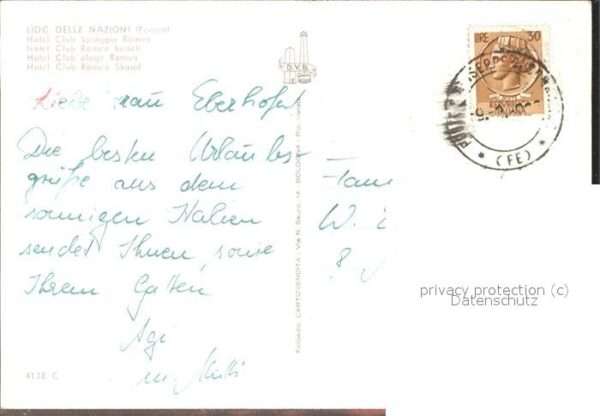 LIDO DELLE NAZIONI (Ferrara)
Hotel Club Spiaggia Romea
Hotel Club Romea beach
Hotel Club plage Romea
Hotel Club Romea Strand
D.V.B.
LIRE 30
(FE)
Liebe Frau Eberhofer
Die besten Urlaubs
grüße aus dem
sonnigen Italien
sendet Ihnen, sowie
Ihrem Gatten
Agi
u. Mutti
Fam
W.
8
BOLOGNA
4138 C
privacy protection (c)
Datenschutz